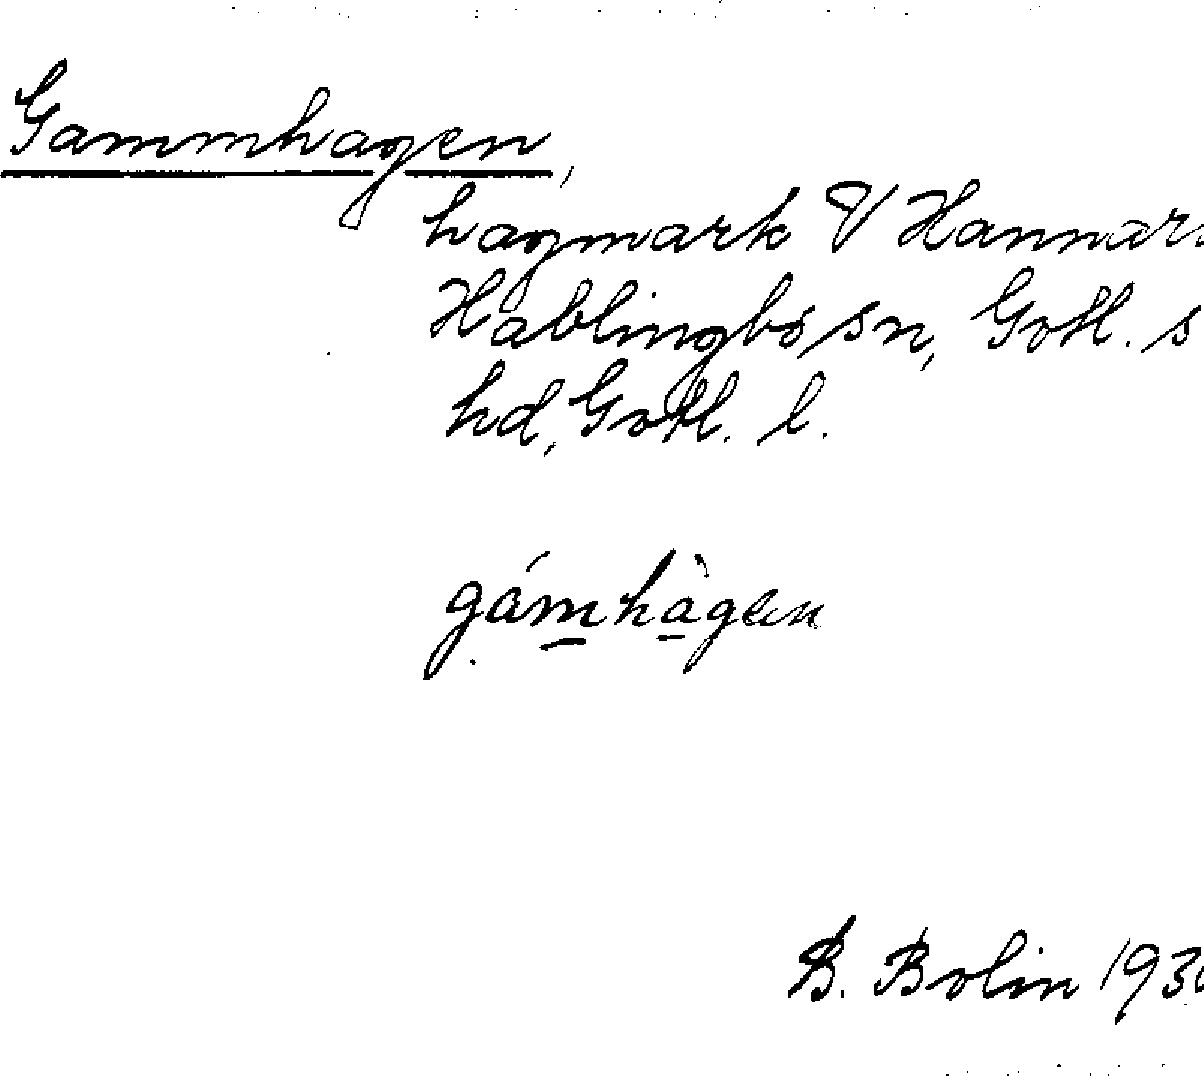 Gammhagen,
hagmark V Hannar
Hablingbo sn, Gotl. s
hd, Gotl. l.
gámhàgen
B. Bolin 193